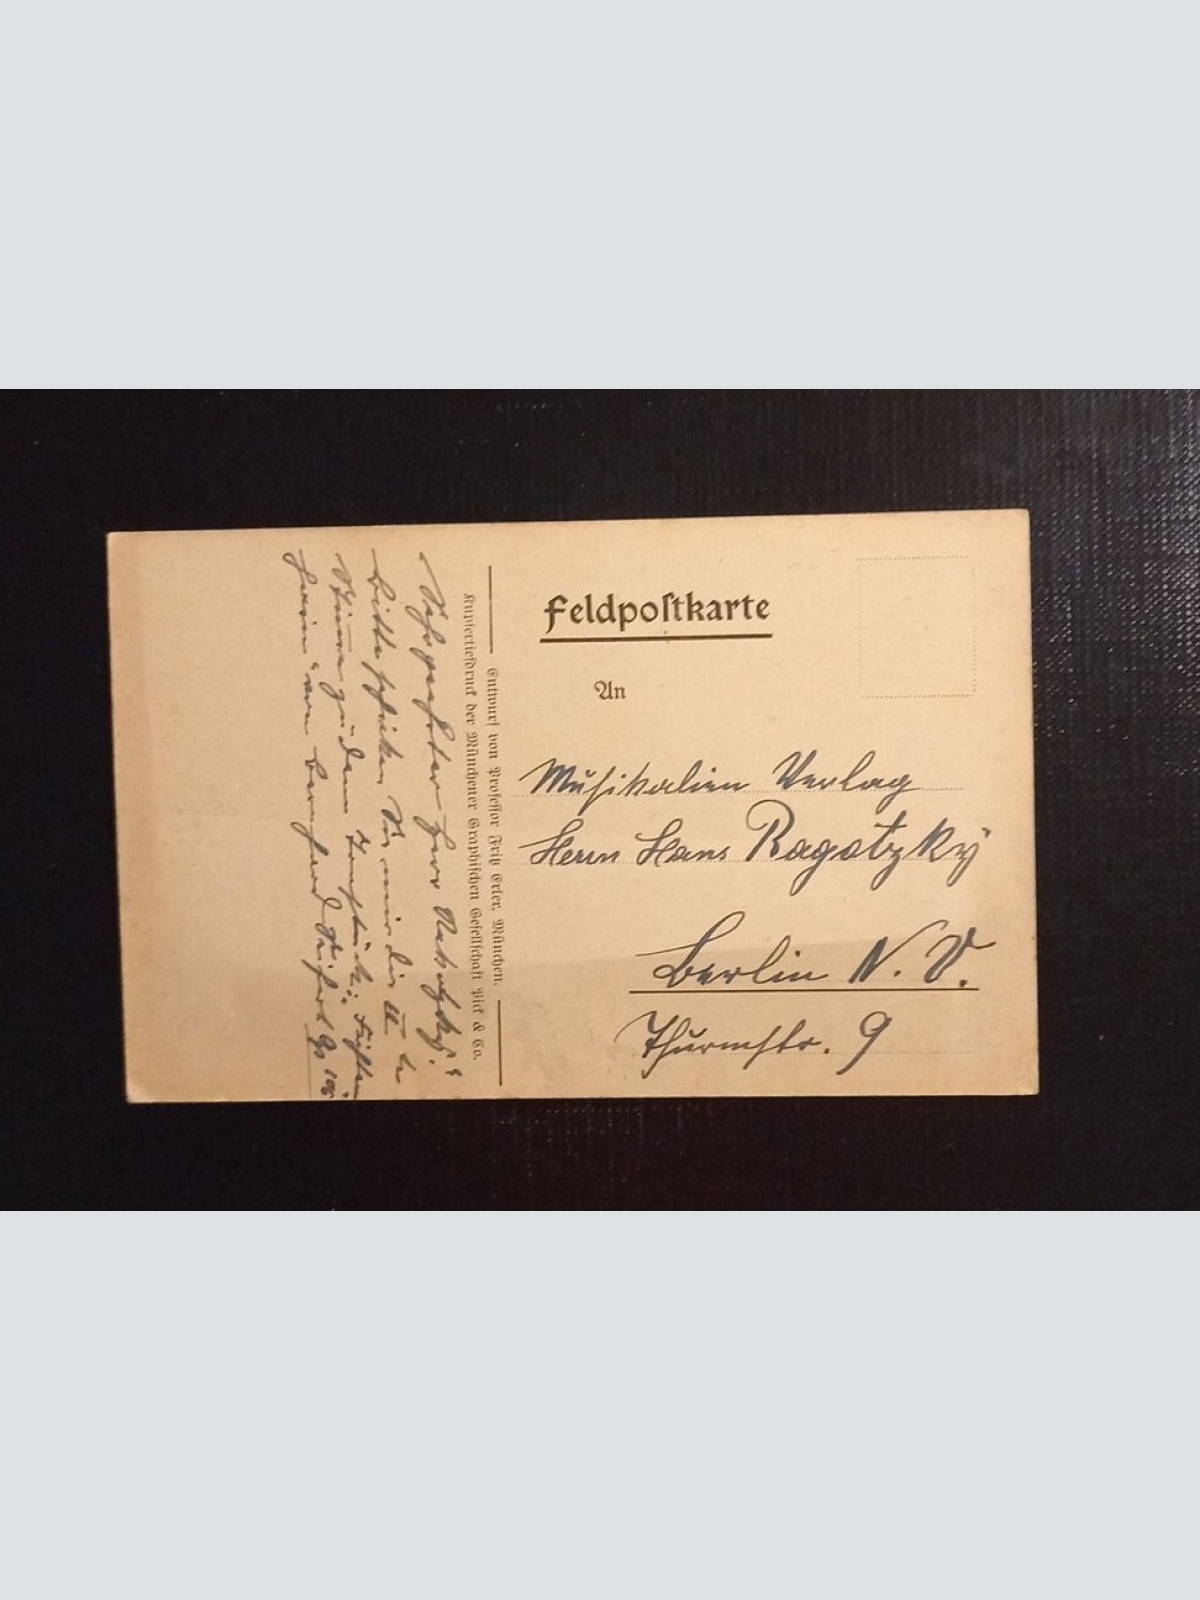 Feldpostkarte
An
Musikalien Verlag
Herrn Hans Ragotzky
Berlin N. O.
Thurmstr. 9
Entwurf von Professor Fritz Erler, München.
Kupfertiefdruck der Münchener Graphischen Gesellschaft Pick & Co.
Sehr geehrter Herr Ragotzky!
Bitte schicken Sie mir die II te
Stimme zu dem
von Bernhard